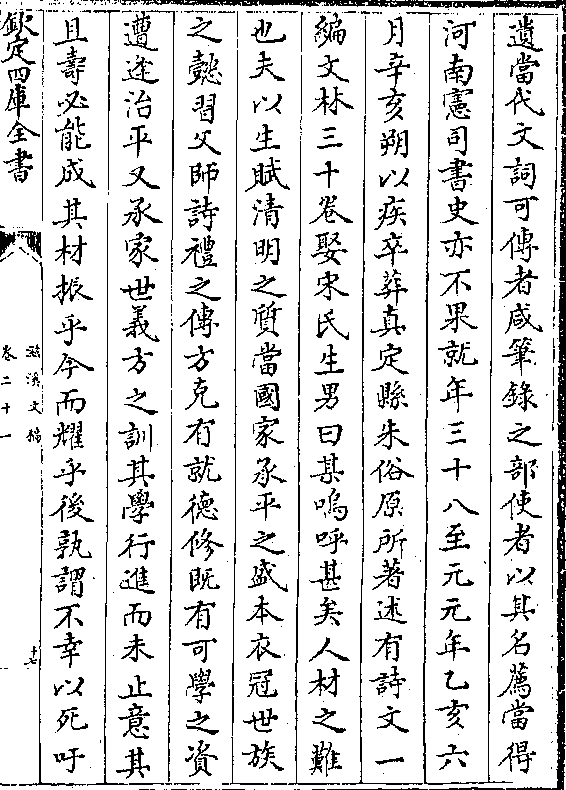 遺當代文詞可傳者咸筆錄之部使者以其名薦當得
河南憲司書史亦不果就年三十八至元元年乙亥六
月辛亥朔以疾卒葬真定縣朱俗原所著述有詩文一
編文林三十卷娶宋氏生男曰某嗚呼甚矣人材之難
也夫以生賦清明之質當國家承平之盛本衣冠世族
之懿習父師詩禮之傳方克有就德修既有可學之資
遭逢治平又承家世義方之訓其學行進而未止意其
且壽必能成其材振乎今而耀乎後孰謂不幸以死吁
欽定四庫全書
滋溪文稿
卷二十一
十七